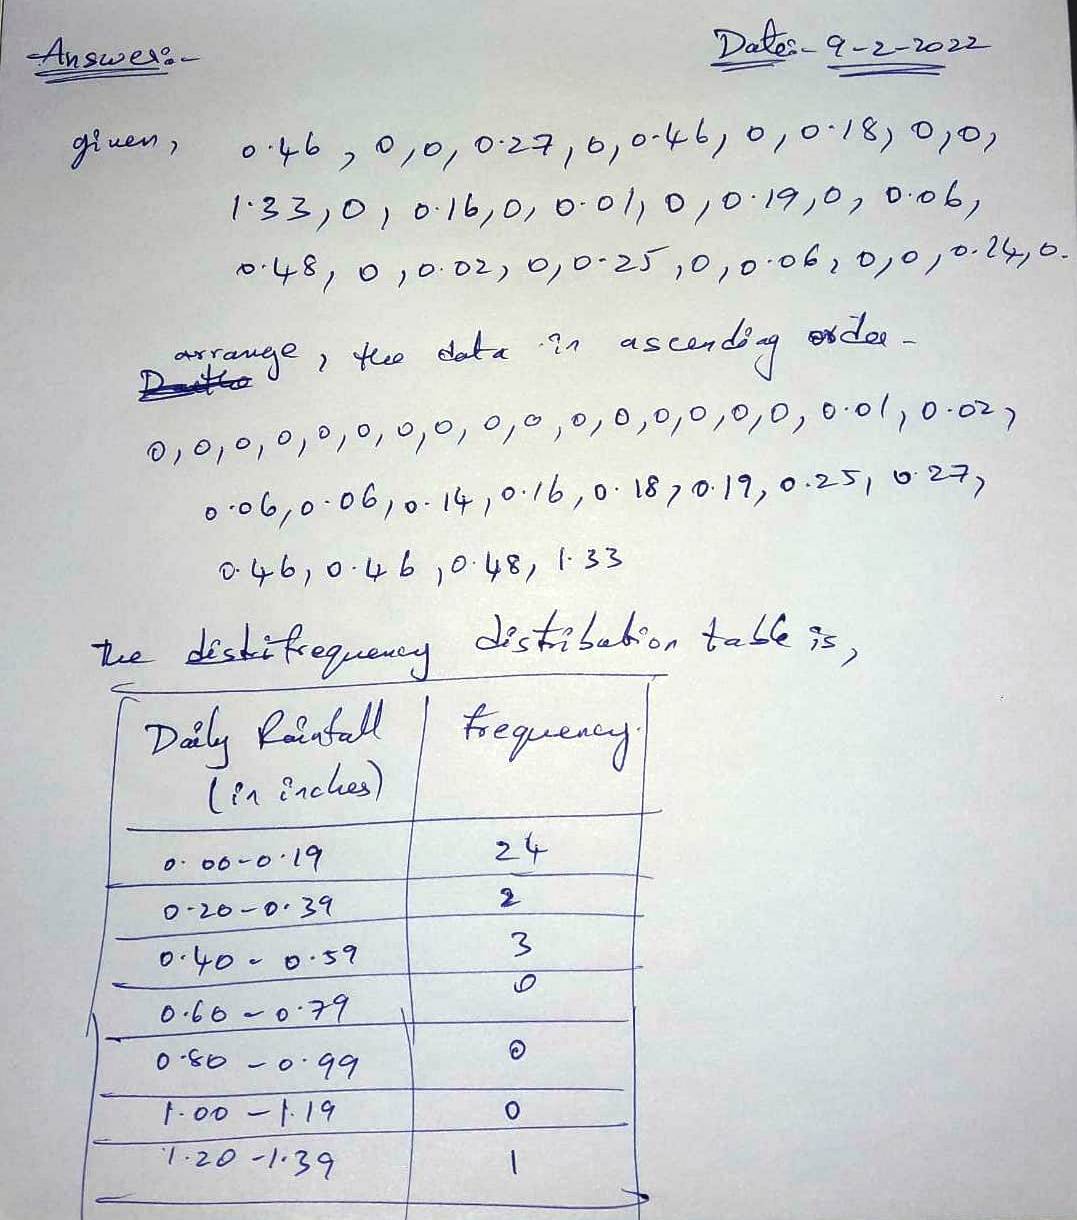 Answer:-
Date:- 9-2-2022
given, 0.46, 0, 0, 0.27, 0, 0.46, 0, 0.18, 0, 0,
1.33, 0, 0.16, 0, 0.01, 0, 0.19, 0, 0.06,
0.48, 0, 0.02, 0, 0.25, 0, 0.06, 0, 0, 0.24, 0.
arrange, the data in ascending order -
0, 0, 0, 0, 0, 0, 0, 0, 0, 0, 0, 0, 0, 0, 0, 0, 0.01, 0.02,
0.06, 0.06, 0.14, 0.16, 0.18, 0.19, 0.25, 0.27,
0.46, 0.46, 0.48, 1.33
the frequency distribution table is,
Daily Rainfall (in inches) frequency.
0.00-0.19 24
0.20-0.39 2
0.40-0.59 3
0.60-0.79 0
0.80-0.99 0
1.00-1.19 0
1.20-1.39 1